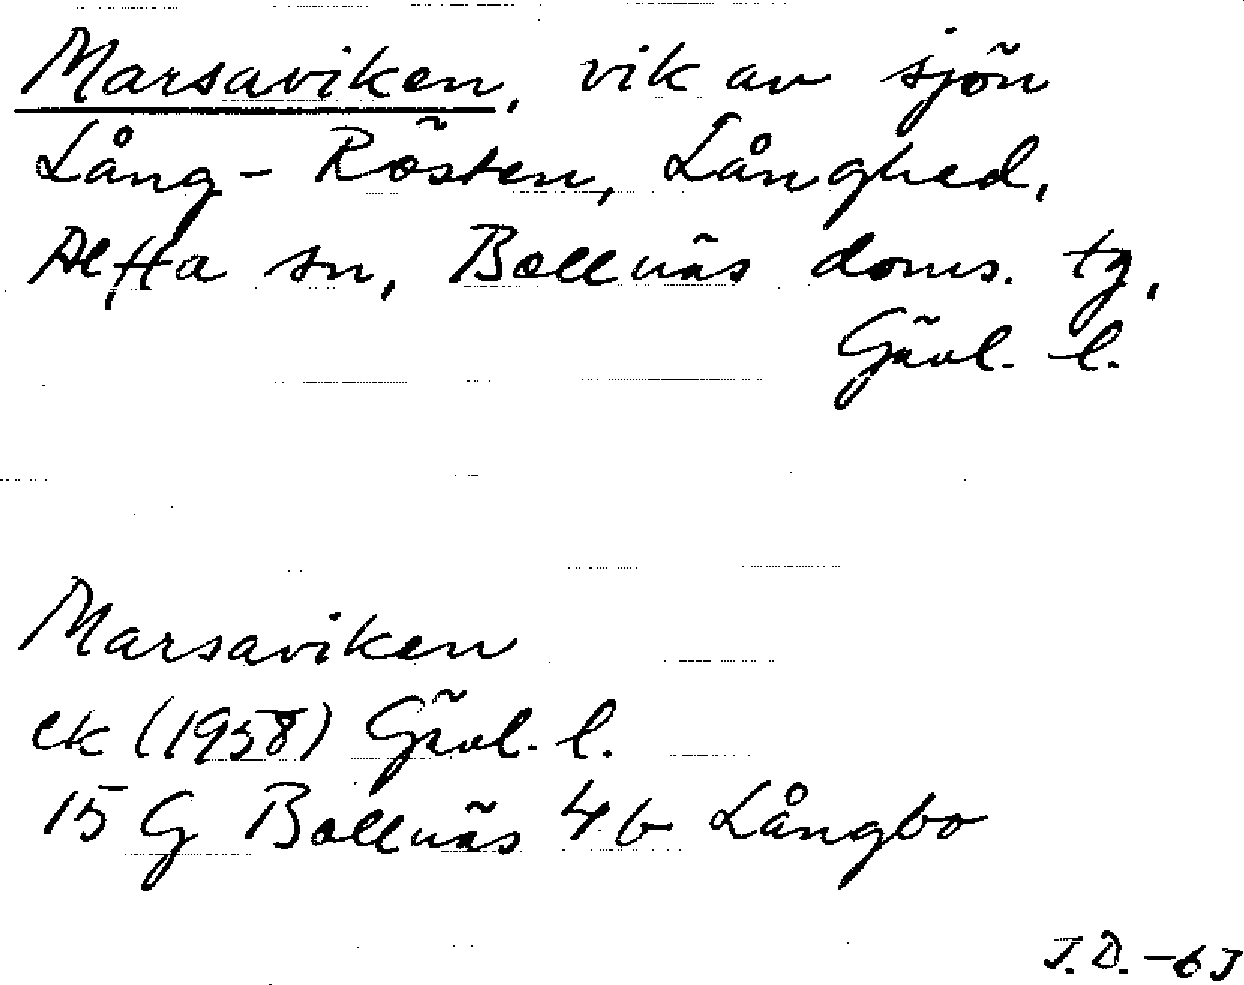 Marsaviken, vik av sjön
Lång-Rösten, Långhed,
Alfta sn, Bollnäs doms. tg,
Gävl. l.
Marsaviken
ek (1958) Gävl. l.
15 G Bollnäs 4b Långbo
J.D.-63